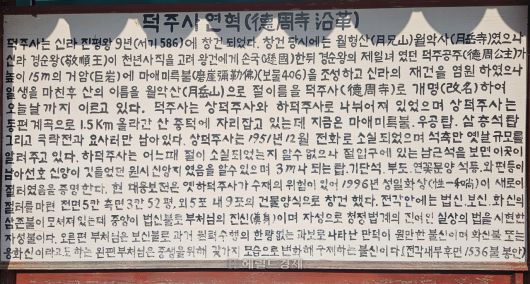 덕주사 연혁(德周寺 沿革)
덕주사는 신라 진평왕 9년(서기586)에 창건 되었다. 창건 당시에는 월형산(月兄山)월악사(月岳寺)였으나
신라 경순왕(敬順王)이 천년사직을 고려 왕건에게 손국(遜國)한뒤 경순왕의 제일녀 였던 덕주공주(德周公主)가
높이 15m의 거암(巨岩)에 마애미륵불(磨崖彌勒佛)(보물406)을 조성하고 신라의 재건을 염원 하였으나
일생을 마친후 산의 이름을 월악산(月岳山)으로 절이름을 덕주사(德周寺)로 개명(改名)하여
오늘날까지 이르고 있다. 덕주사는 상덕주사와 하덕주사로 나뉘어져 있었으며 상덕주사는
동편계곡으로 1.5Km 올라간 산 중턱에 자리잡고 있는데 지금은 마애미륵불. 우공탑. 삼층석탑
그리고 극락전과 요사러만 남아있다. 상덕주사는 1951년12월 전화로 소실되었으며 석축만 옛날 규모를
알려주고 있다. 하덕주사는 어느때 절이 소실되었는지 알수 없으나 절입구에 있는 남근석을 보면 이곳이
남아선호 신앙이 깃들었던 원시신앙지 였음을 알수 있으며 3m나 되는 탑.기단석. 부도. 연꽃문양 석등. 와편등이
절터였음을 증명한다. 현 대웅보전은 옛하덕주사가 수재의 위험이 있어 1996년 성일화상(性一和尚)이 새로이
절터를 마련 전면5칸 측면3칸 52평. 외5포 내9포의 건물양식으로 창건 했다. 전각안에는 법신.보신. 화신의
삼존불이 모셔져 있는데 중앙이 법신불로 부처님의 진신(眞身)이며 자성으로 청정법계의 진여인 실상의 법을 시현한
자성불이다. 오른편 부처님은 보신불로 과거 원력수행의 한량없는 과보로 나타난 만덕이 원만한 불신이며 화신불 또는
응화신이라고도 하는 왼편 부처님은 중생을 위해 갖가지 모습으로 변화해 구제하는 불신이다.(전각새부후면 1536불 봉안)
헤럴드경제